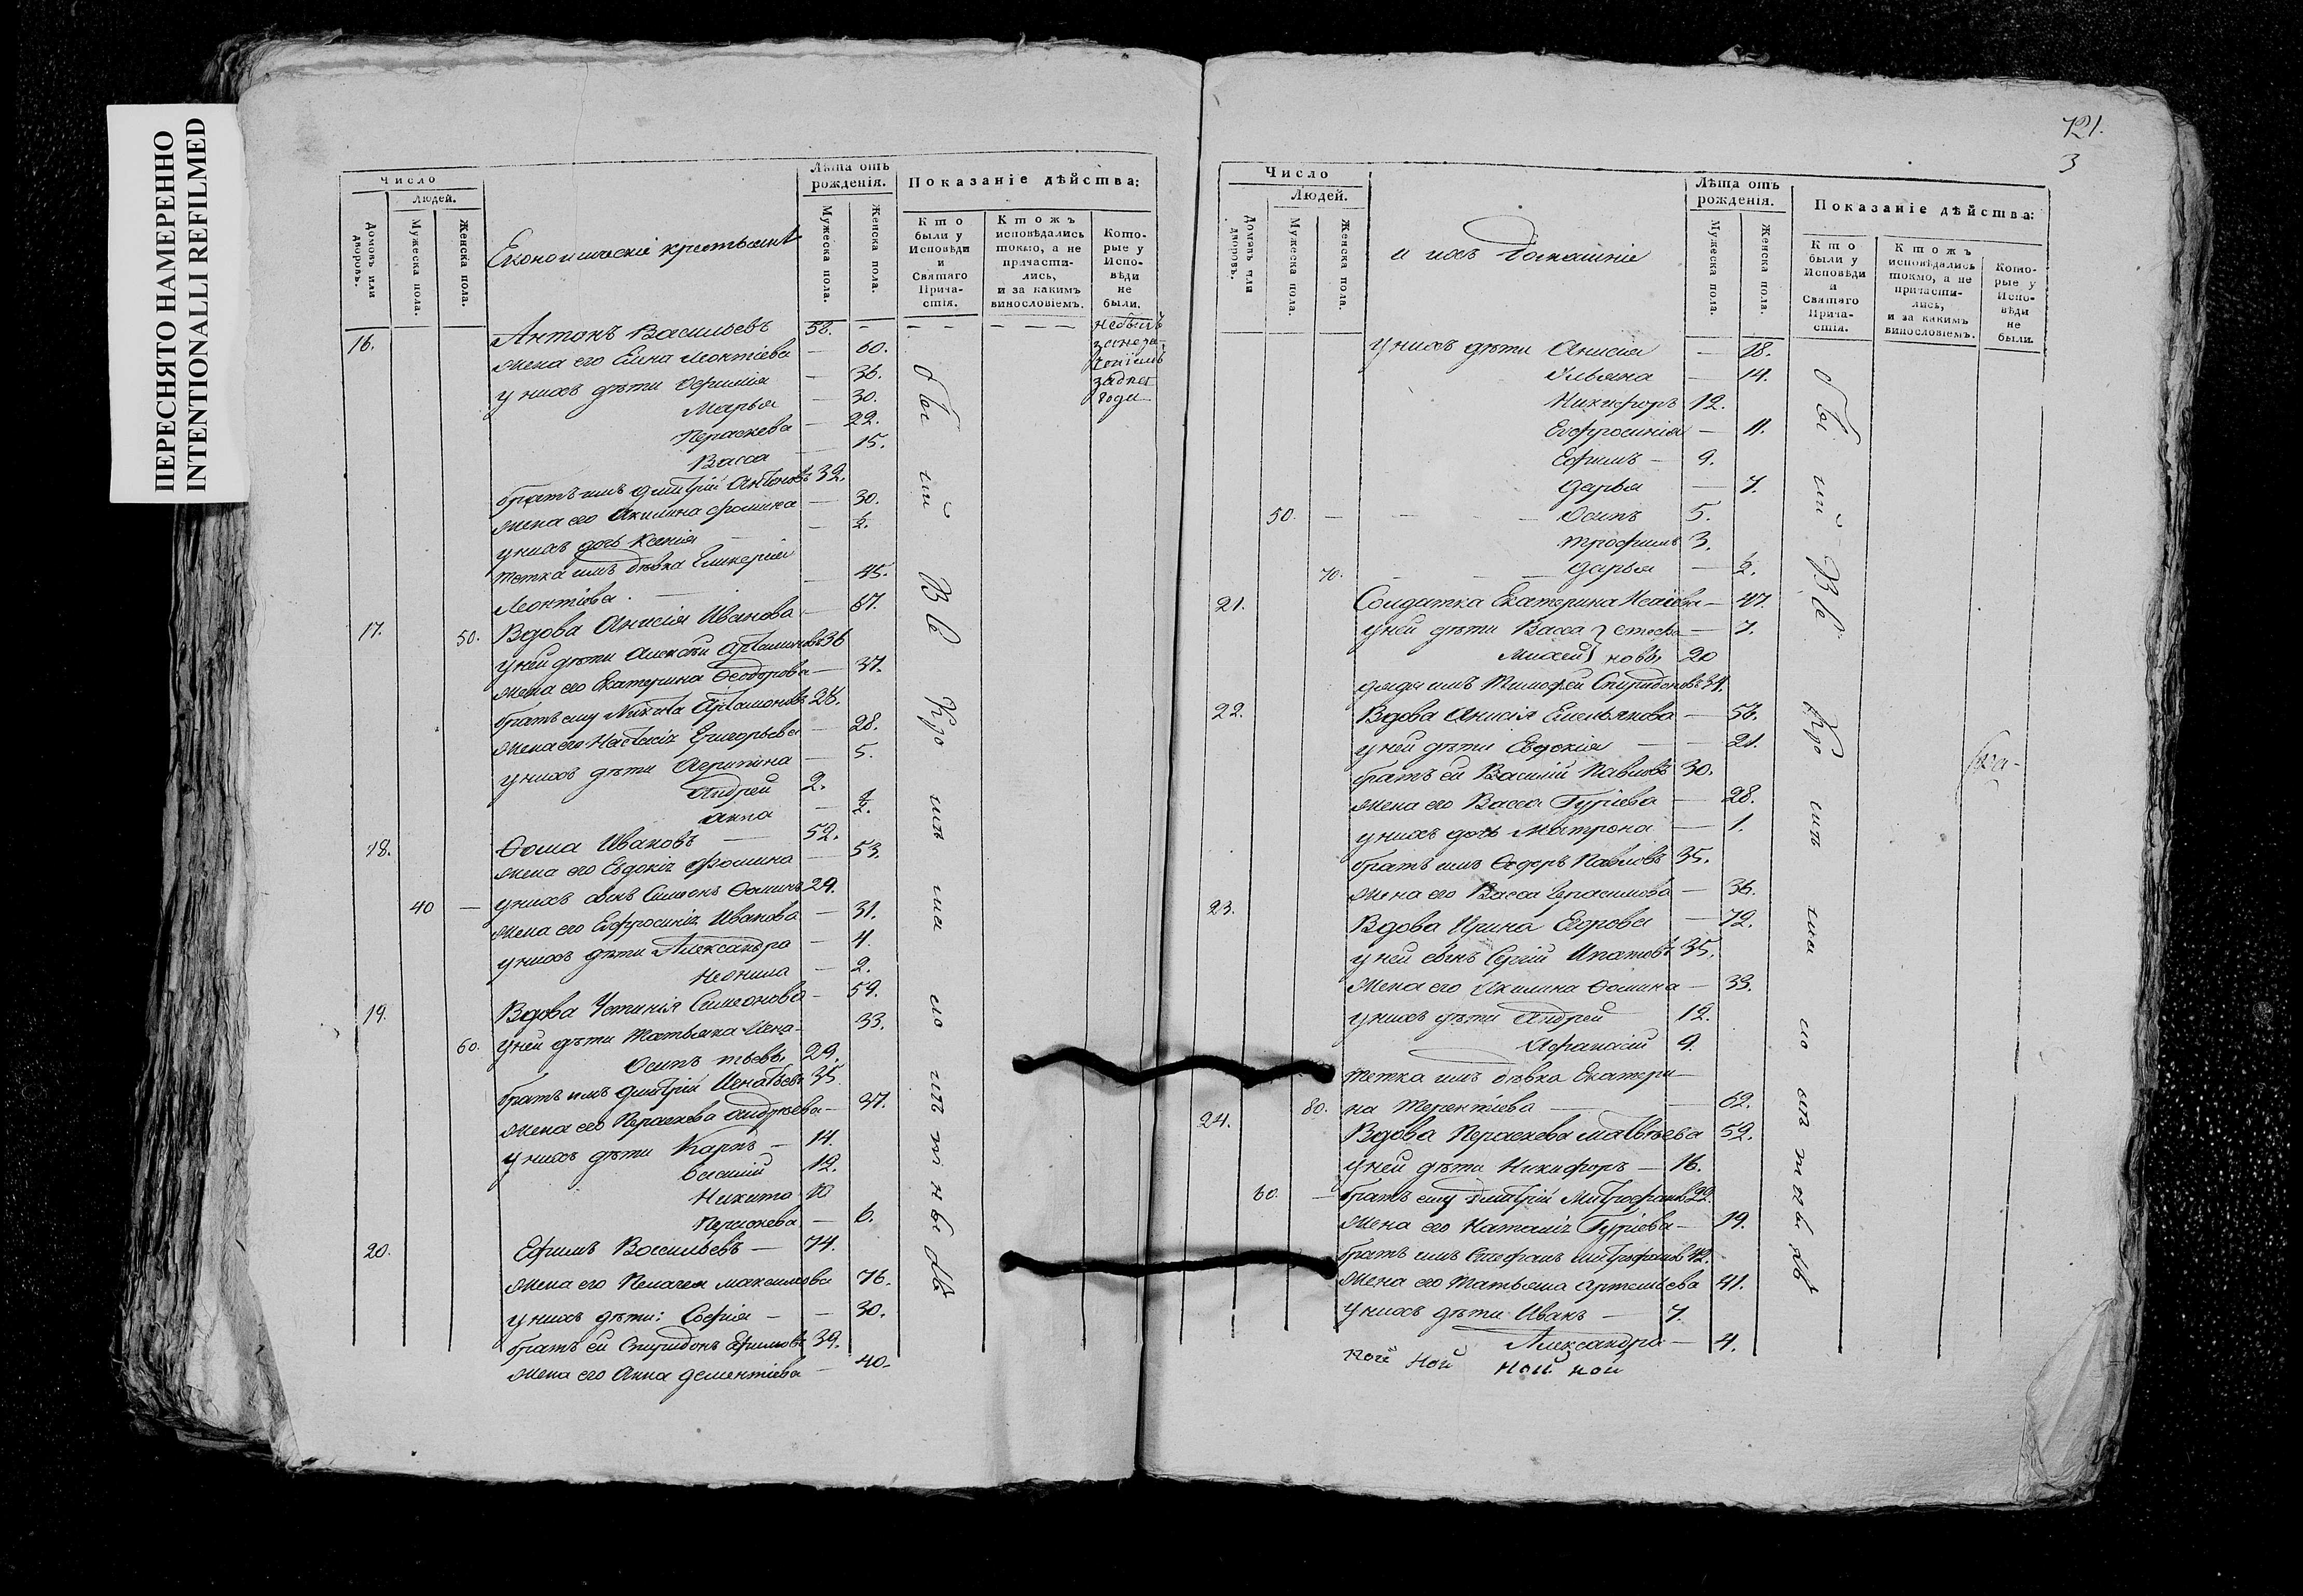 ПЕРЕСНЯТО НАМЕРЕННО
INTENTIONALLI REFILMED
Число
Людей.
Домовъ или дворовъ.
Мужеска пола.
Женска пола.
Економическіе крестьяне
Лѣта отъ рожденія.
Мужеска пола.
Женска пола.
Показаніе дѣйства:
Кто были у Исповѣди и Святаго Причастія.
Ктожъ исповѣдались токмо, а не причастились, и за какимъ винословіемъ.
Которые у Исповѣди не были.
16. Антонъ Васильевъ 58. - - - - - - небылъ
жена его Елена Леонтіева — 60.
у нихъ дѣти Офимія — 36.
Марья — 30.
Пераскева — 22.
Васса — 15.
братъ имъ Дмитрій Антоновъ 32.
жена его Акилина Фомина — 30.
у нихъ дочь Ксенія — ½.
тетка имъ дѣвка Гликерія
Леонтіева — 45.
17. 50. Вдова Анисія Иванова — 67.
у ней дѣти Алексѣй Артамоновъ 36
жена его Екатерина Ѳеодорова — 37.
братъ ему Никита Артамоновъ 28.
жена его Настасія Григорьева — 28.
у нихъ дѣти Агрипина — 5.
Андрей 2.
Анна — ½.
18. Ѳома Ивановъ — 52.
жена его Евдокія Фомина — 53.
у нихъ сынъ Симеонъ Ѳоминъ 29.
40 — жена его Евфросинія Иванова — 31.
у нихъ дѣти Александра — 4.
Неонила — 2.
19. Вдова Устинія Симеонова — 59.
60. у ней дѣти Татьяна Игна- 33.
Осипъ тьевы 29.
братъ имъ Дмитрій Игнатьевъ 35
жена его Пераскева Андреева — 37.
у нихъ дѣти Карпъ — 14.
Василий 12.
Никита 10
Пераскева — 6.
20. Ефимъ Васильевъ — 74.
жена его Пелагея Максимова 76.
у нихъ дѣти: Софія — — 30.
братъ ей Спиридонъ Ефимовъ 39.
жена его Анна Дементіева — 40.
721.
3
Число
Людей.
Домовъ или дворовъ.
Мужеска пола.
Женска пола.
и ихъ домашніе
Лѣта отъ рожденія.
Мужеска пола.
Женска пола.
Показаніе дѣйства:
Кто были у Исповѣди и Святаго Причастія.
Ктожъ исповѣдались токмо, а не причастились, и за какимъ винословіемъ.
Которые у Исповѣди не были.
у нихъ дѣти Анисія — 18.
Ульяна — 14.
Никифоръ 12.
Евфросинія — 11.
Ефимъ — 9.
Дарья — 7.
50. — — — Осипъ 5.
Трофимъ 3.
70. — — Дарья — ½.
21. Солдатка Екатерина Исаіева — 47.
у ней дѣти Васса } Стефа- — 7.
новы 20
дядя имъ Тимофей Спиридоновъ 34.
22. Вдова Анисія Емельянова — 56.
у ней дѣти Евдокія — — 21.
братъ ей Василій Павловъ 30.
жена его Васса Гуріева — 28.
у нихъ дочь Матрона — 1.
братъ имъ Ѳедоръ Павловъ 35.
жена его Васса Герасимова — 36.
23. Вдова Ирина Егорова — 72.
у ней сынъ Сергій Ипатовъ 35.
жена его Акилина Ѳомина — 33.
у нихъ дѣти Андрей 12.
Афанасий 9.
тетка имъ дѣвка Екатери-
80. на Терентіева — 62.
24. Вдова Пераскева Матвѣева 52.
у ней дѣти Никифоръ — 16.
60. — братъ ему Дмитрій Митрофановъ 22.
жена его Наталія Гуріева — 19.
братъ имъ Стефанъ Митрофановъ 42.
жена его Татьяна Артемьева 41.
у нихъ дѣти Иванъ — 7.
Александра — 4.